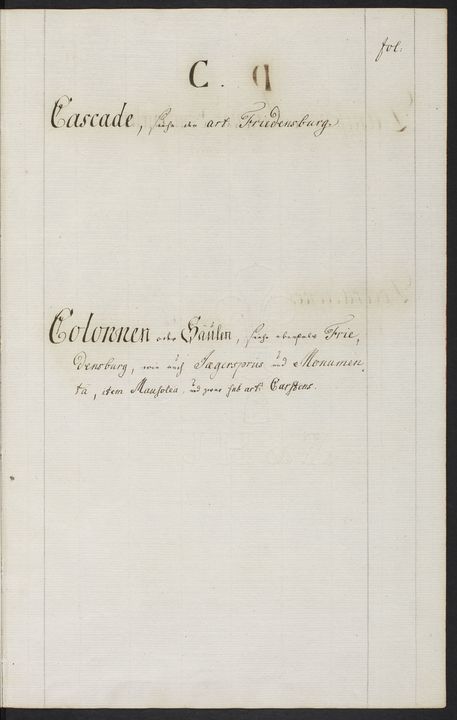 fol:
C.
Cascade, siehe den art: Friedensburg.
Colonnen oder Säulen, siehe ebenfals Frie,
densburg, wie auch Jægersprüs und Monumen,
ta, item Mausolea, und zwar sub art: Carstens.